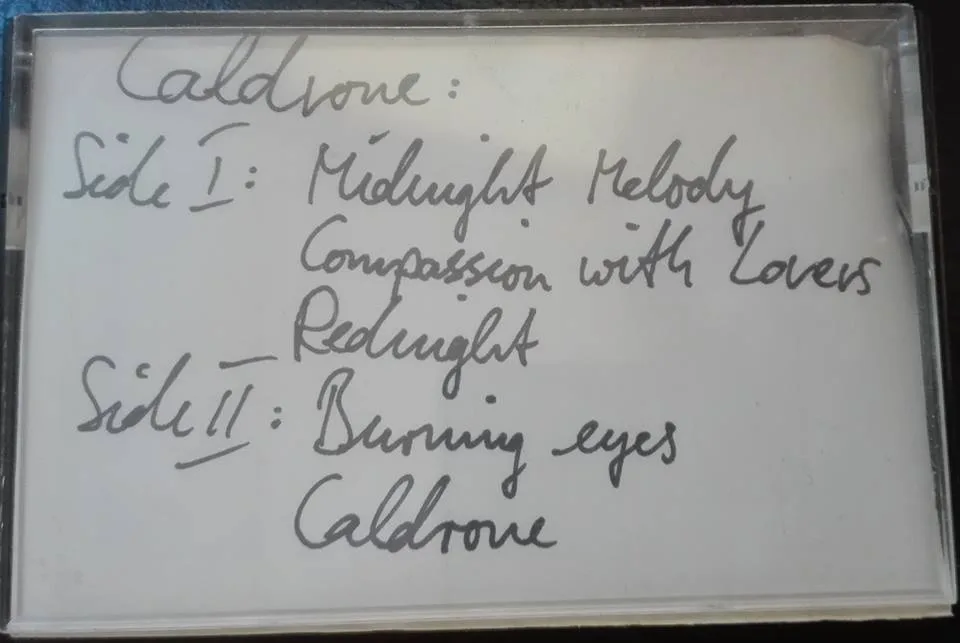 Caldrone:
Side I: Midnight Melody
Compassion with Lovers
Rednight
Side II: Burning eyes
Caldrone